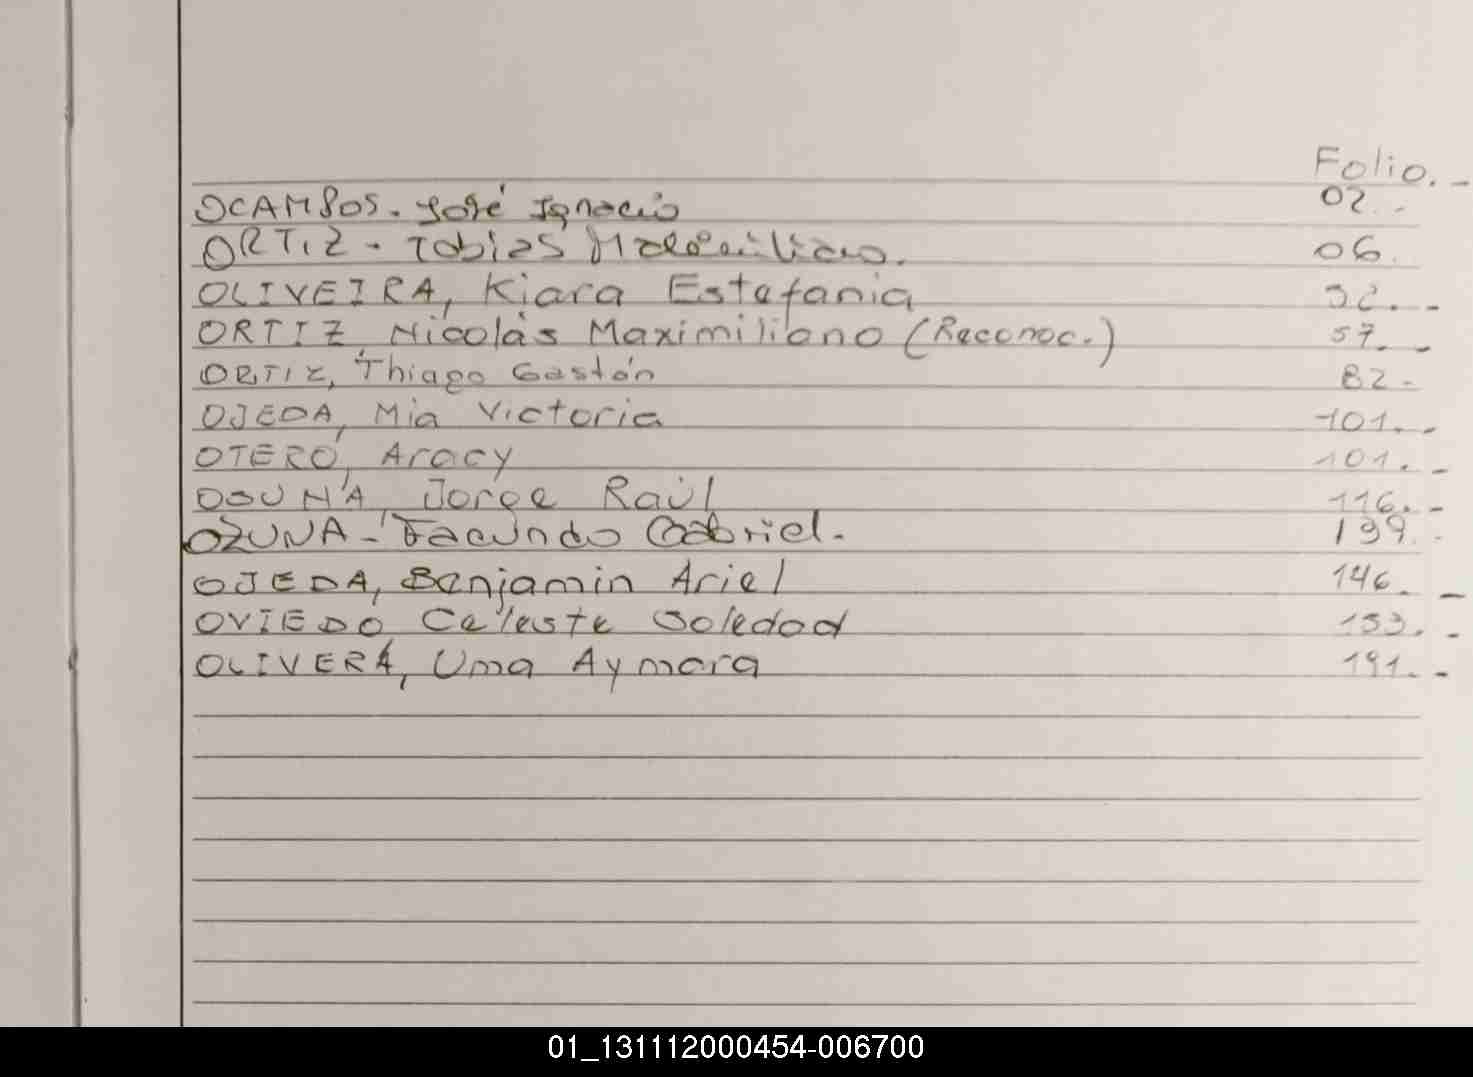 Folio.-
OCAMPOS. José Ignacio 02.-
ORTIZ - Tobias 06.
OLIVEIRA, Kiara Estefania 32.-
ORTIZ, Nicolás Maximiliano (Reconoc.) 57.-
ORTIZ, Thiago Gastón 82.-
OJEDA, Mia Victoria 101.-
OTERO, Aracy 101.-
OSUNA, Jorge Raúl 116.-
OZUNA - Facundo Gabriel. 139.-
OJEDA, Benjamin Ariel 146.-
OVIEDO, Celeste Soledad 153.-
OLIVERA, Uma Aymara 191.-
01_131112000454-006700